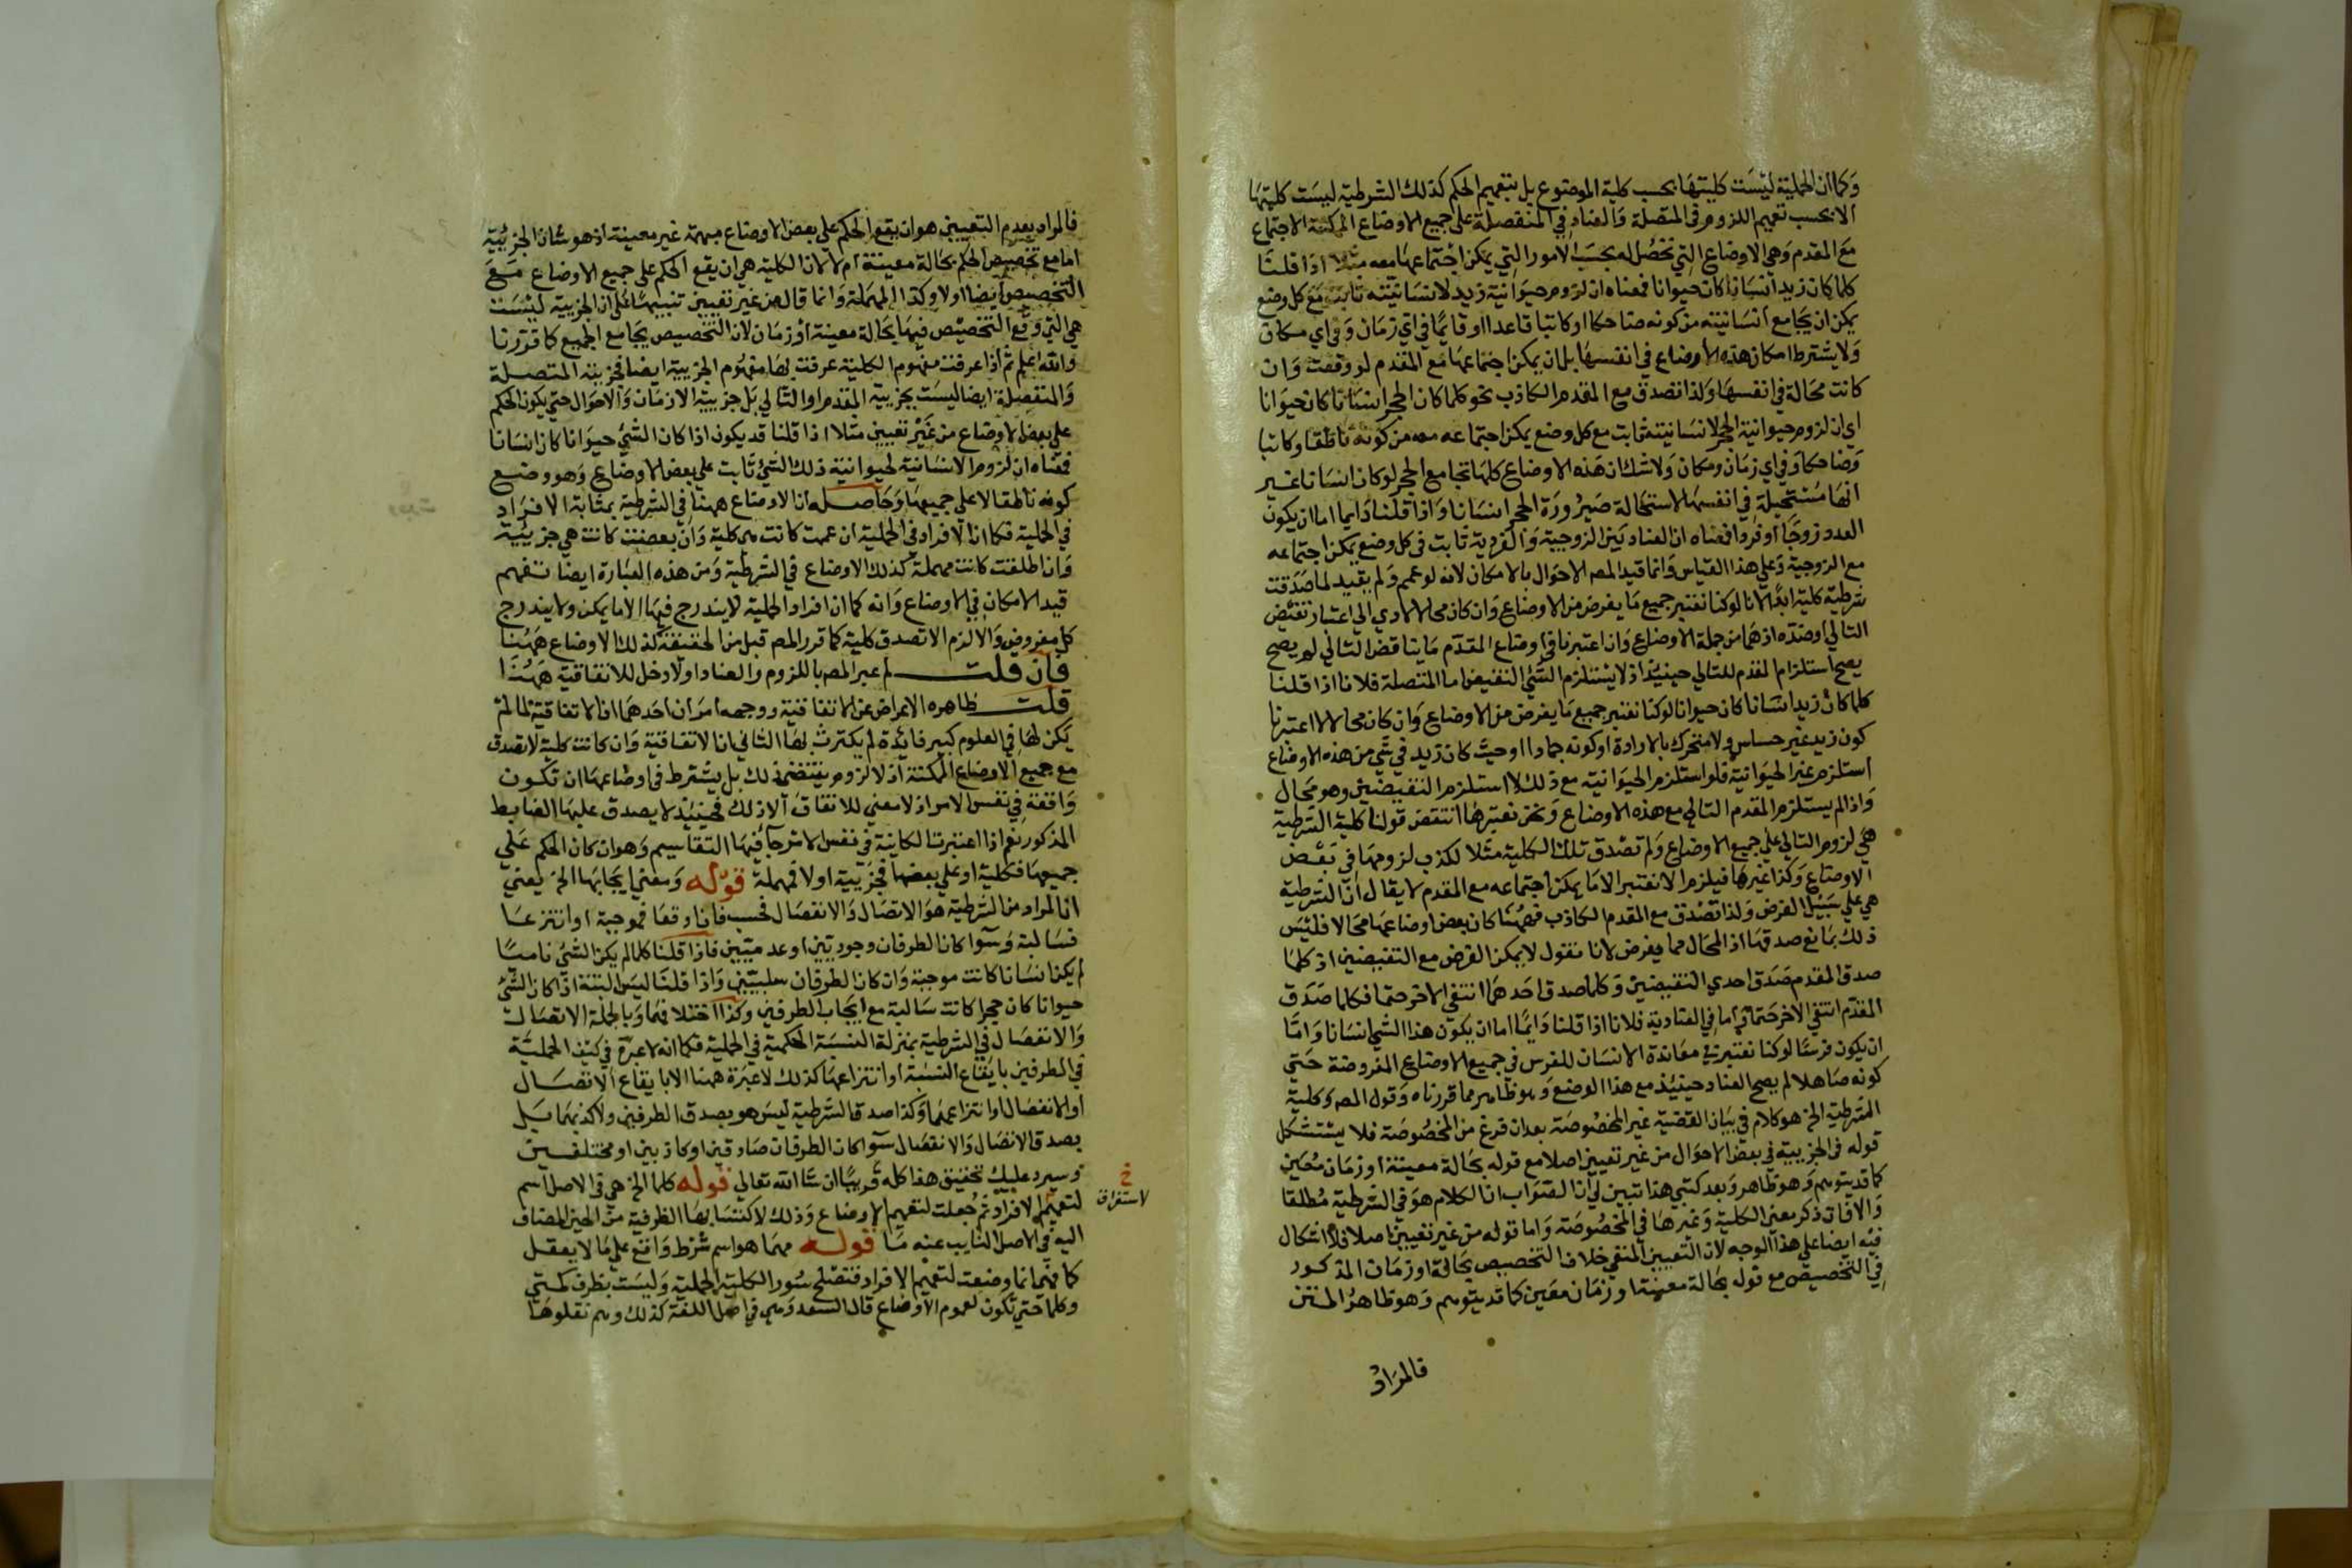 وكما ان الحملية ليست كليتها بحسب كلية الموضوع بل بتعميم الحكم كذلك الشرطية ليست كليتها
الا بحسب تعميم اللزوم في المتصلة والعناد في المنفصلة على جميع الاوضاع الممكنة الاجتماع
مع المقدم وهي الاوضاع التي تحصل له بحسب الامور التي يمكن اجتماعها معه مثلا اذا قلنا
كلما كان زيد انسانا كان حيوانا فمعناه ان لزوم حيوانية زيد لانسانيته ثابت مع كل وضع
يمكن ان يجامع انسانيته من كونه ضاحكا او كاتبا قاعدا او قائما في اي زمان وفي اي مكان
ولا يشترط امكان هذه الاوضاع في انفسها بل ان يمكن اجتماعها مع المقدم لو وقعت وان
كانت محالة في انفسها ولذا تصدق مع المقدم الكاذب نحو كلما كان الحجر انسانا كان حيوانا
اي ان لزوم حيوانية الحجر لانسانيته ثابت مع كل وضع يمكن اجتماعه معه من كونه ناطقا وكاتبا
وضاحكا وفي اي زمان ومكان ولا شك ان هذه الاوضاع كلها تجامع الحجر لو كان انسانا غير
انها مستحيلة في انفسها لاستحالة صيرورة الحجر انسانا واذا قلنا دايما اما ان يكون
العدد زوجا او فردا فمعناه ان العناد بين الزوجية والفردية ثابت في كل وضع يمكن اجتماعه
مع الزوجية وعلي هذا القياس وانما قيد المص الاحوال بالامكان لانه لو عمم ولم يقيد لما صدقت
شرطية كلية ابدا لانا لو كنا نعتبر جميع ما يفرض من الاوضاع وان كان محالا لادي الي اعتبار نقيض
التالي او ضده اذ هما من جملة الاوضاع وان اعتبرنا في اوضاع المقدم ما يناقض التالي لم يصح
يصح استلزام المقدم للتالي حينئذ اذ لا يستلزم الشئ النقيض اما المتصلة فلانا اذا قلنا
كلما كان زيد انسانا كان حيوانا لو كنا نعتبر جميع ما يفرض من الاوضاع وان كان محالا لاعتبرنا
كون زيد غير حساس ولا متحرك بالارادة او كونه جمادا وحيث كان زيد في شي من هذه الاوضاع
استلزم غير الحيوانية فلو استلزم الحيوانية مع ذلك لاستلزم النقيضين وهو محال
واذا لم يستلزم المقدم التالي مع هذه الاوضاع ونحن نعتبرها انتقض قولنا كلية الشرطية
هي لزوم التالي علي جميع الاوضاع ولم تصدق تلك الكلية مثلا لكذب لزومها في بعض
الاوضاع وكذا غيرها فيلزم الا نعتبر الا ما يمكن اجتماعه مع المقدم لا يقال ان الشرطية
هي علي سبيل الفرض ولذا تصدق مع المقدم الكاذب فههنا كان بعض اوضاعها محالا فليس
ذلك بمانع صدقها اذ المحال مما يفرض لانا نقول لا يمكن الفرض مع النقيضين اذ كلما
صدق المقدم صدق احدي النقيضين وكلما صدق احدهما انتفي الاخر حتما فكلما صدق
المقدم انتفي الاخر حتما واما في العنادية فلانا اذا قلنا دايما اما ان يكون هذا الشئ انسانا واما
ان يكون فرسا لو كنا نعتبر في معاندة الانسان للفرس في جميع الاوضاع المفروضة حتي
كونه صاهلا لم يصح العناد حينئذ مع هذا الوضع وهو ظاهر مما قررناه وقول المص وكلية
الشرطية الخ هو كلام في بيان القضية غير المخصوصة بعد ان فرغ من المخصوصة فلا يستشكل
قوله في الجزيية في بعض الاحوال من غير تعيين اصلا مع قوله بحالة معينة او زمان معين
كما قد يتوهم وهو ظاهر وبعد كتبي هذا تبين لي ان الصواب ان الكلام هو في الشرطية مطلقا
والا فات ذكر معني الكلية وغيرها في المخصوصة واما قوله من غير تعيين اصلا فلا اشكال
فيه ايضا علي هذا الوجه لان التعيين المنفي خلاف التخصيص بحالة او زمان المذكور
في التخصيص مع قوله بحالة معينة او زمان معين كما قد يتوهم وهو ظاهر المتن
فالمراد
فالمراد بعدم التعيين هو ان يقع الحكم علي بعض الاوضاع مبهمة غير معينة اذ هو شان الجزئية
اما مع تخصيص الحكم بحالة معينة ام لا لان الكلية هي ان يقع الحكم علي جميع الاوضاع مع
التخصيص ايضا اولا وكذا المهملة وانما قال من غير تعيين تنبيها علي ان الجزيية ليست
هي التي وقع التخصيص فيها بحالة معينة او زمان لان التخصيص يجامع الجميع كما قررنا
والله اعلم ثم اذا عرفت مفهوم الكلية عرفت بها مفهوم الجزيية ايضا فجزيية المتصلة
والمنفصلة ايضا ليست بجزيية المقدم او التالي بل جزيية الازمان والاحوال حتي يكون الحكم
علي بعض الاوضاع من غير تعيين مثلا اذا قلنا قد يكون اذا كان الشئ حيوانا كان انسانا
فمعناه ان لزوم الانسانية لحيوانية ذلك الشئ ثابت علي بعض الاوضاع وهو وضع
كونه ناطقا لا علي جميعها وحاصله ان الاوضاع ههنا في الشرطية بمثابة الافراد
في الحملية فكما ان الافراد في الحملية ان عمت كانت هي كلية وان بعضت كانت هي جزيية
وان اطلقت كانت مهملة كذلك الاوضاع في الشرطية ومن هذه العبارة ايضا تفهم
قيد الامكان في الاوضاع وانه كما ان افراد الحملية لا يندرج فيها الا ما يمكن ولا يندرج
كل مفروض والا لزم الا تصدق كلية كما قرر المص قبل من الحقيقة كذلك الاوضاع ههنا
فان قلت لم عبر المص باللزوم والعناد اولا دخل للاتفاقية ههنا
قلت ظاهره الاعراض عن الاتفاقية ووجهه امران احدهما ان الاتفاقية لما لم
يكن لها في العلوم كبير فائدة لم يكترث بها الثاني ان الاتفاقية وان كانت كلية لا تصدق
مع جميع الاوضاع الممكنة اذ لا لزوم يقتضي ذلك بل يشترط في اوضاعها ان تكون
واقعة في نفس الامر اذ لا معني للاتفاق الا ذلك فحينئذ لا يصدق عليها الضابط
المذكور نعم اذا اعتبرنا الكاينة في نفس الامر جا فيها التقاسيم وهو ان كان الحكم علي
جميعها فكلية او علي بعضها فجزيية اولا فمهملة قوله ومعني ايجابها الخ يعني
ان المراد من الشرطية هو الاتصال والانفصال فحسب فان اوقعا فموجبة او انتزعا
فسالبة وسوا كان الطرفان وجوديتين او عدميتين فاذا قلنا كلما لم يكن الشئ نامـيا
لم يكن انسانا كانت موجبة وان كان الطرفان سلبيتين واذا قلنا ليس البتة اذا كان الشئ
حيوانا كان حجرا كانت سالبة مع ايجاب الطرفين وكذا اختلافهما وبالجملة الاتصال
والانفصال في الشرطية بمنزلة النسبة الحكمية في الحملية فكما انه لا عبرة في كيف الحملية
في الطرفين بايقاع النسبة او انتزاعها كذلك لا عبرة ههنا الا بايقاع الاتصال
او الانفصال او انتزاعهما وكذا صدق الشرطية ليس هو بصدق الطرفين ولا كذبهما بل
بصدق الاتصال والانفصال سوا كان الطرفان صادقين او كاذبين او مختلفين
وسيرد عليك تحقيق هذا كله قريبا ان شا الله تعالي قوله كلما الخ هي في الاصل اسم
لتعميم الافراد ثم جعلت لتعميم الاوضاع وذلك لاكتسابها الظرفية من الحين المضاف
خ
لاستغراق
اليه في الاصل النايب عنه ما قوله مهما هو اسم شرط واقع علي ما لا يعقل
كما فهي انما وضعت لتعميم الافراد فتصلح سور الكلية الحملية وليست بظرف كمتي
وكلما حتي تكون لعموم الاوضاع قال السعد وهي في اصل اللغة كذلك وهم نقلوها